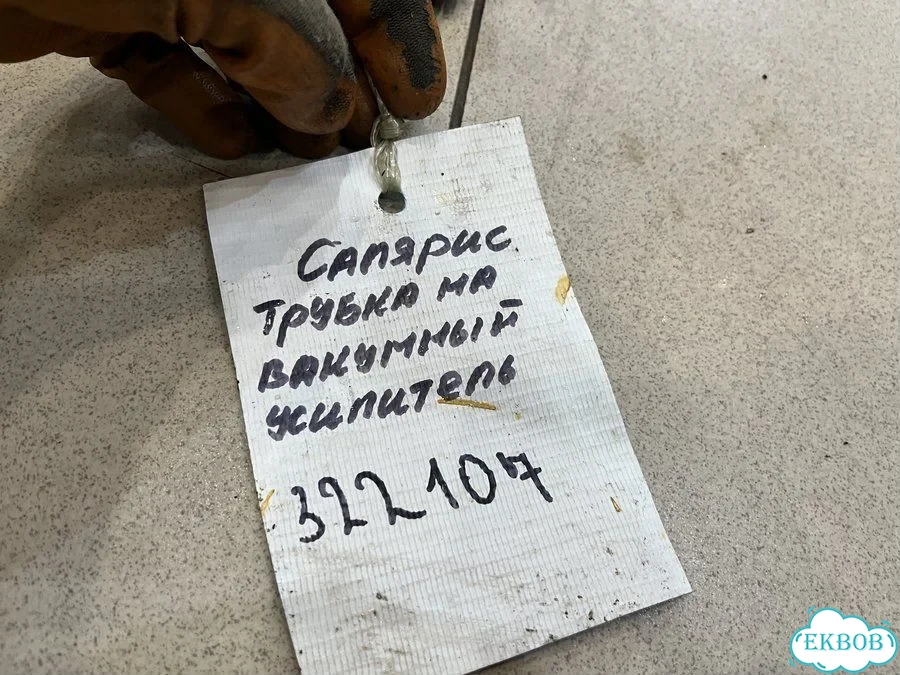 Салярис
трубка на
вакумный
усилитель
322107
EKBOB